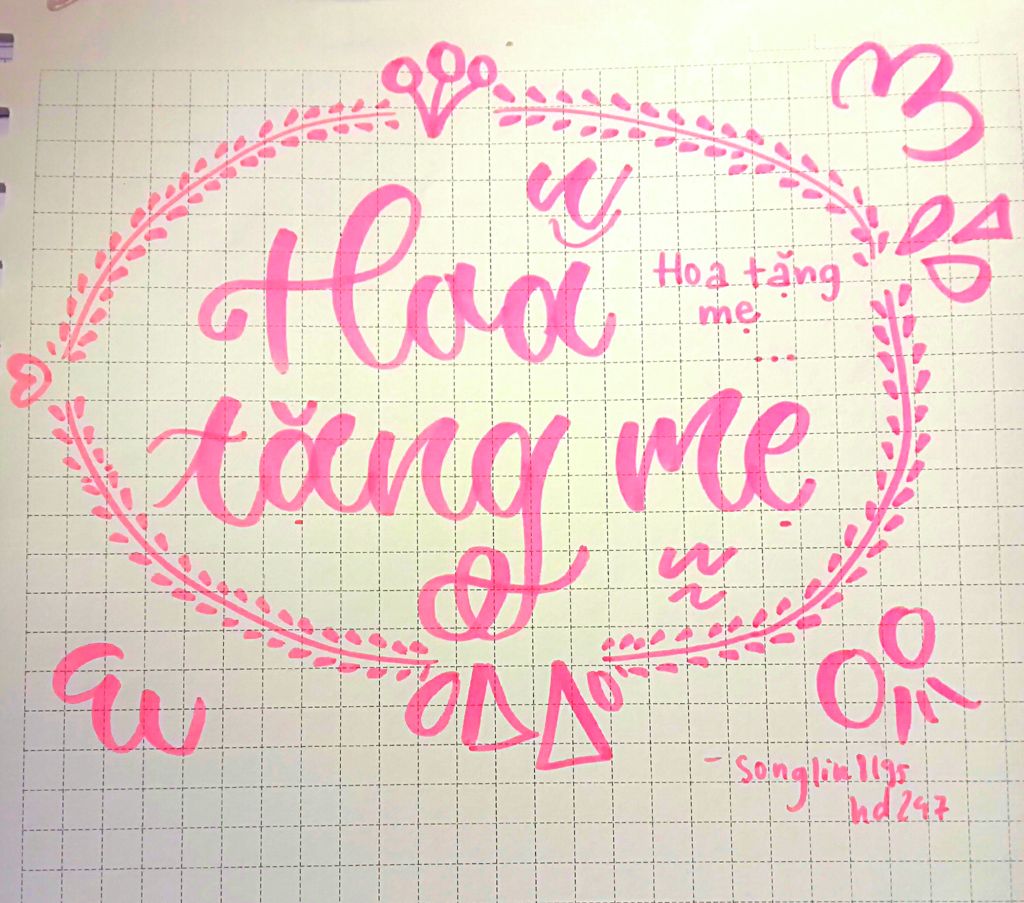 Hoa
Hoa tặng
mẹ
...
tặng mẹ
hd247